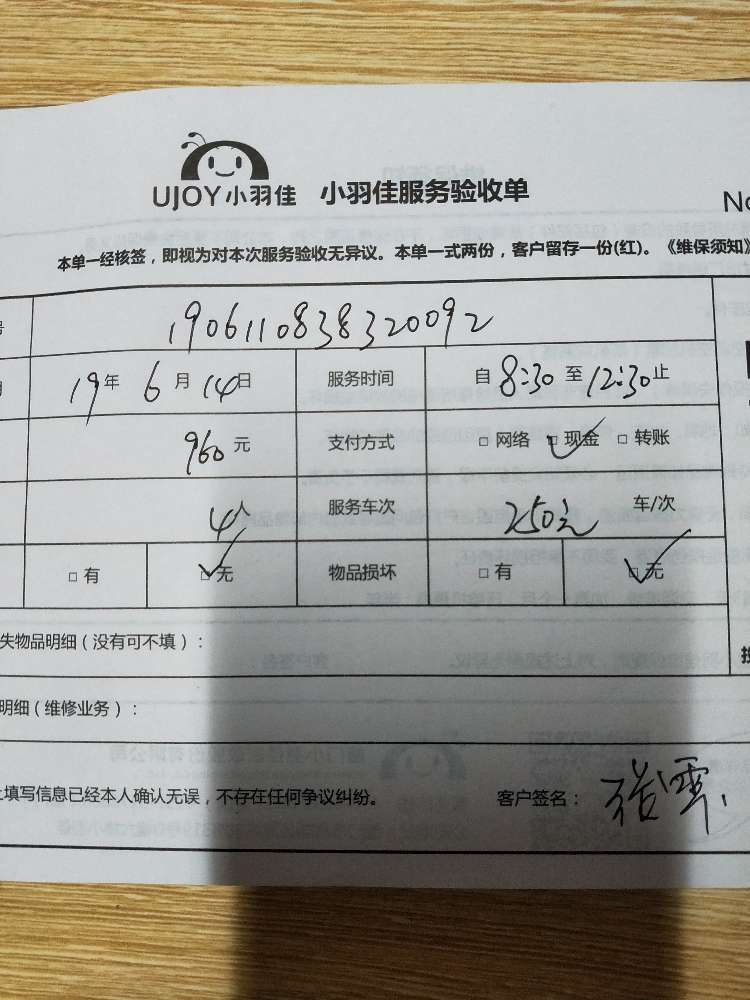 UJOY小羽佳 小羽佳服务验收单
No
本单一经核签，即视为对本次服务验收无异议。本单一式两份，客户留存一份(红)。《维保须知》
1906110838320092
19年 6月 14日 服务时间 自 8:30 至 12:30 止
960元 支付方式 □ 网络 □ 现金 □ 转账
4个 服务车次 250元 车/次
□ 有 □ 无 物品损坏 □ 有 □ 无
失物品明细（没有可不填）：
明细（维修业务）：
上填写信息已经本人确认无误，不存在任何争议纠纷。 客户签名：